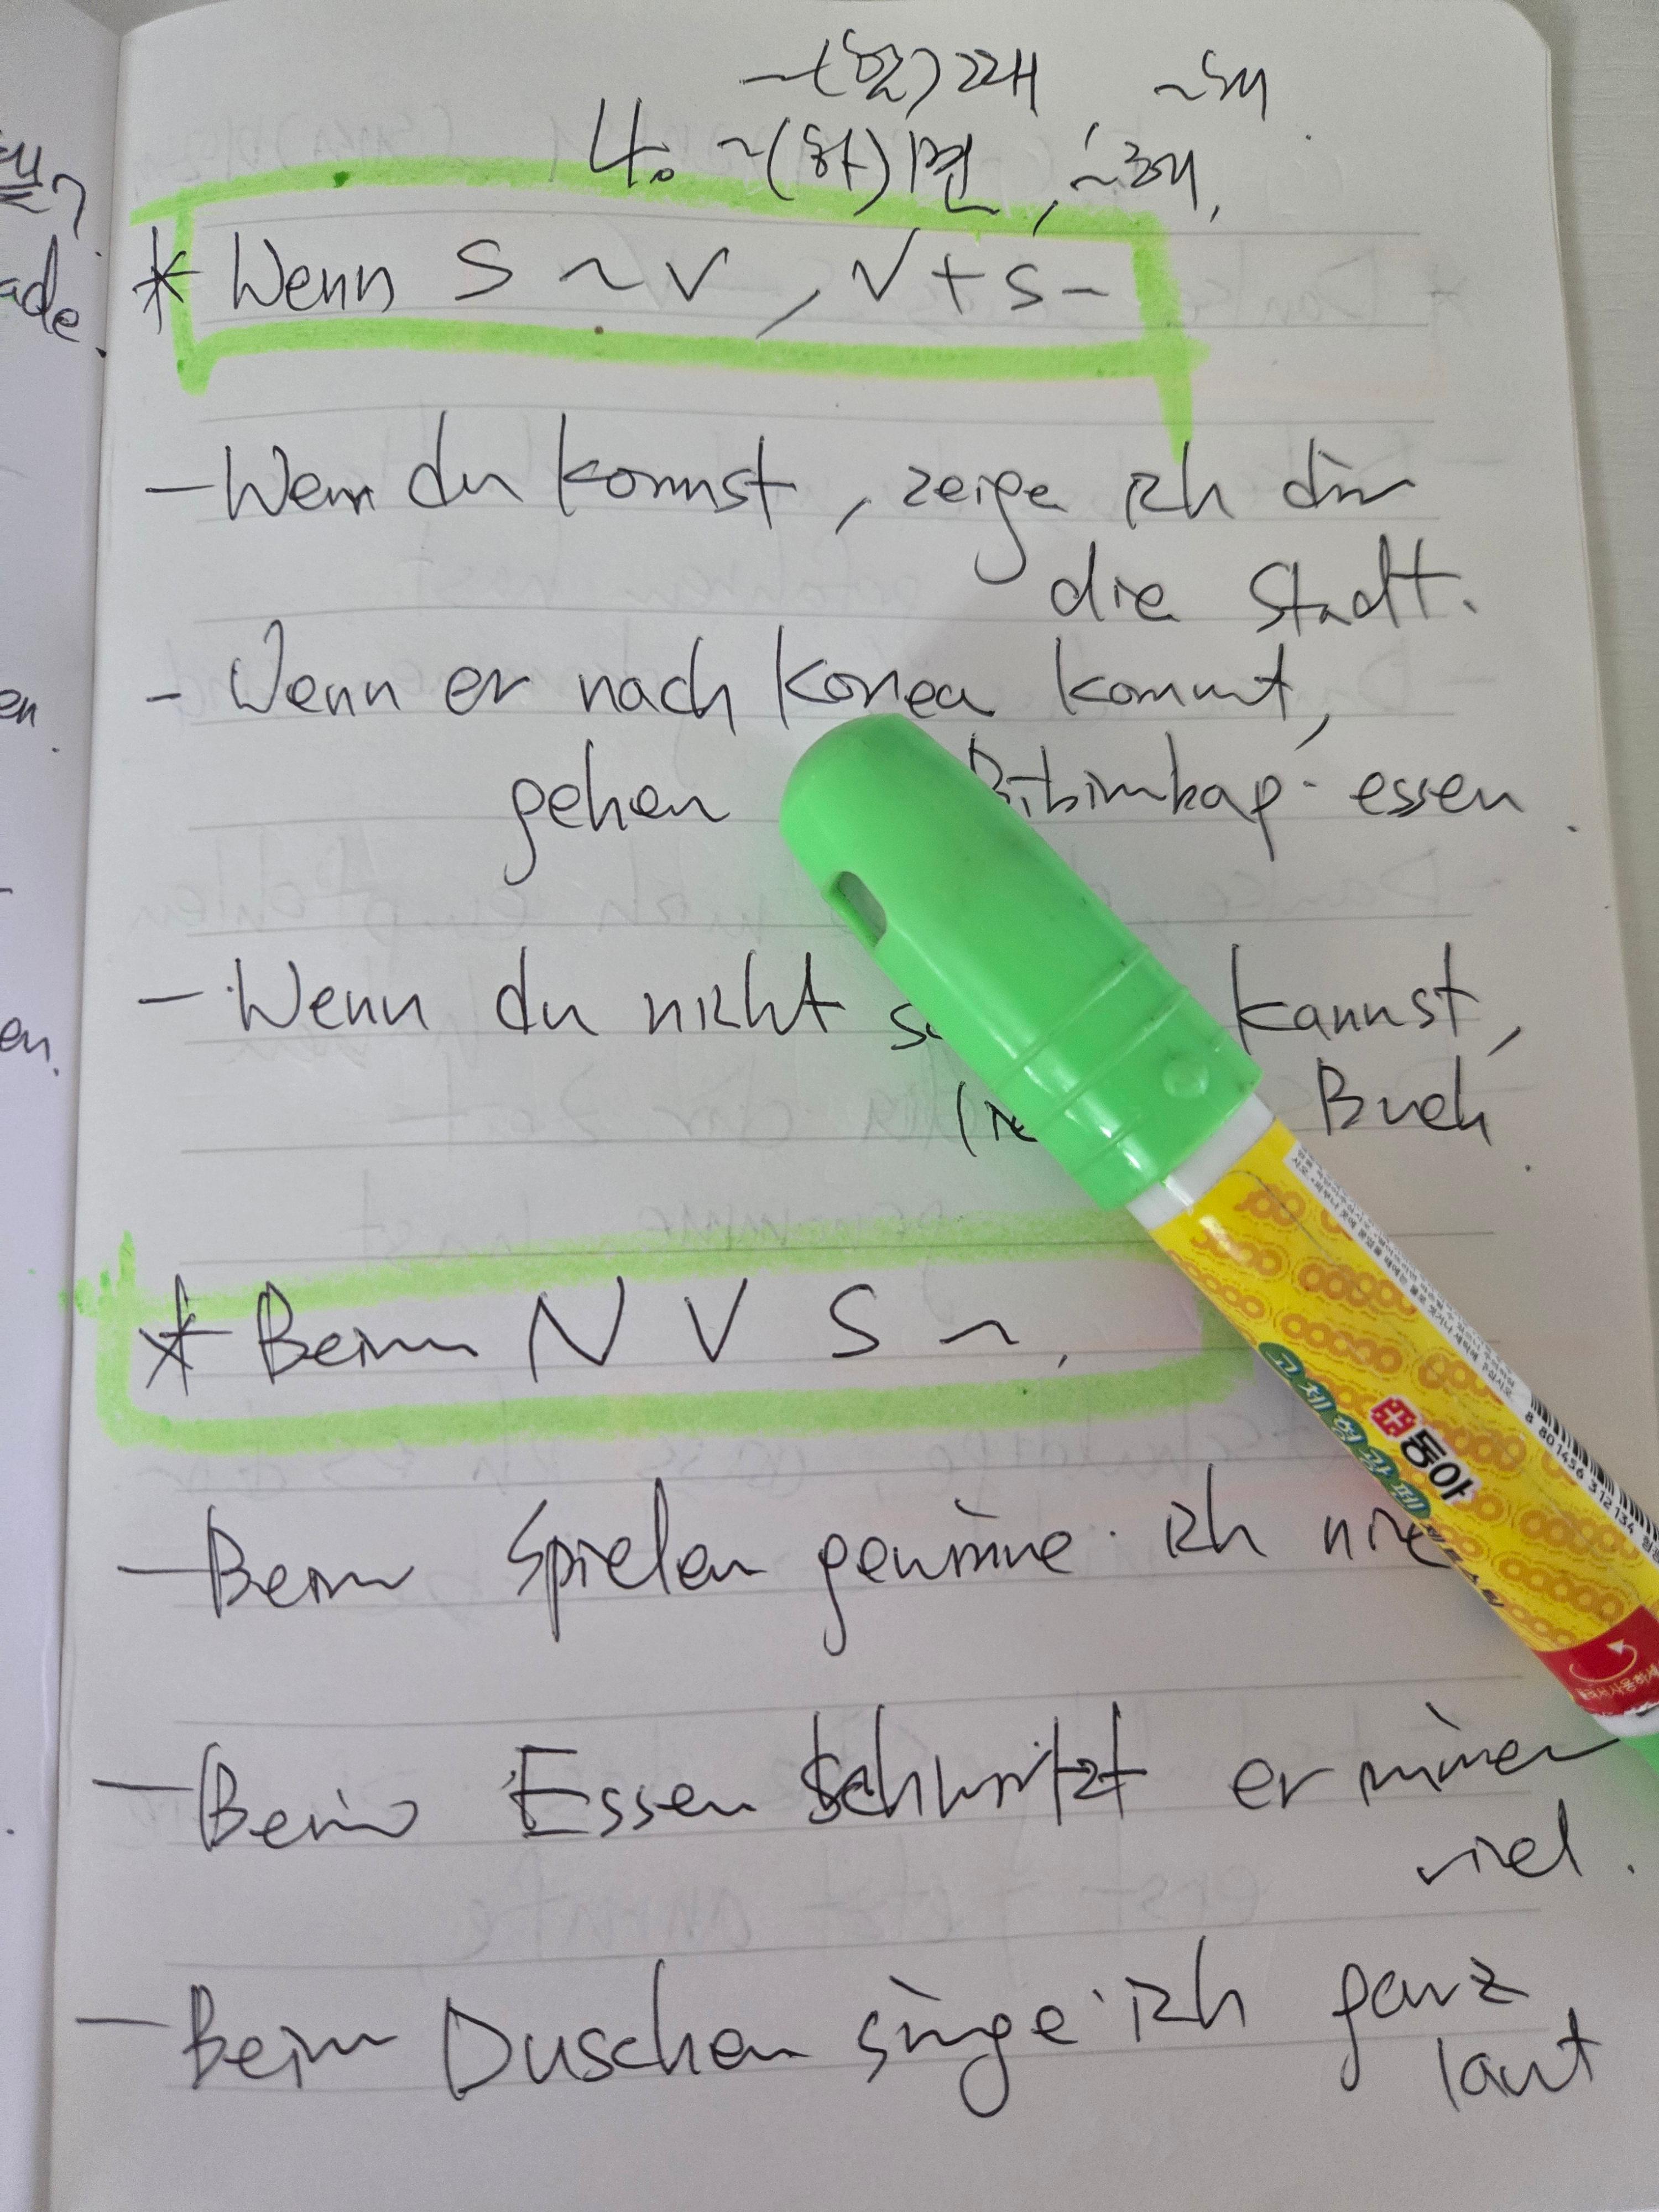 ~(할)때 ~해.
4. ~(하)면, ~해,
* Wenn S ~ V, V + S -
- Wenn du kommst, zeige ich dir
die Stadt.
- Wenn er nach Korea kommt,
gehen Bibimbap essen.
- Wenn du nicht kannst,
Buch.
* Beim N V S ~.
- Beim Spielen gewinne ich nie
- Beim Essen schwitzt er immer
viel.
- Beim Duschen singe ich ganz
laut
ade.
en.
en.
동아
고체형광펜
8 801456 312134